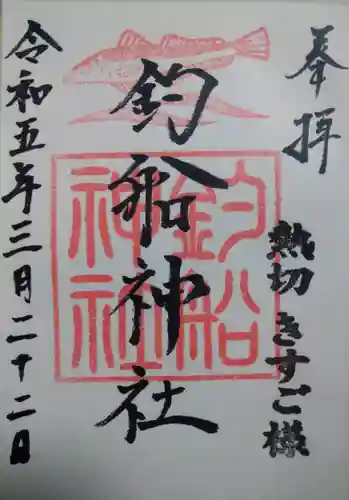 奉拝
熱切 きすご様
釣船神社
釣船
神社
令和五年三月二十二日